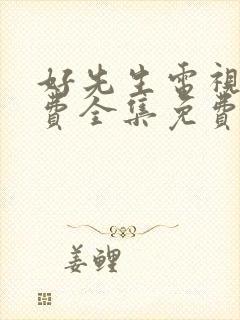 好先生电視
費全集免費
姜鲤